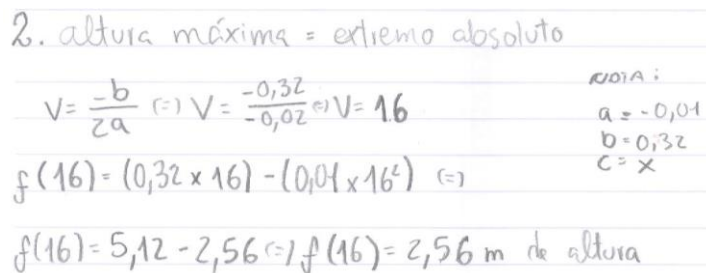 2. altura máxima = extremo absoluto
V = -b/2a (=) V = -0,32/-0,02 (=) V = 16
NOTA:
a = -0,01
b = 0,32
c = x
f(16) = (0,32 x 16) - (0,01 x 16²) (=)
f(16) = 5,12 - 2,56 (=) f(16) = 2,56 m de altura